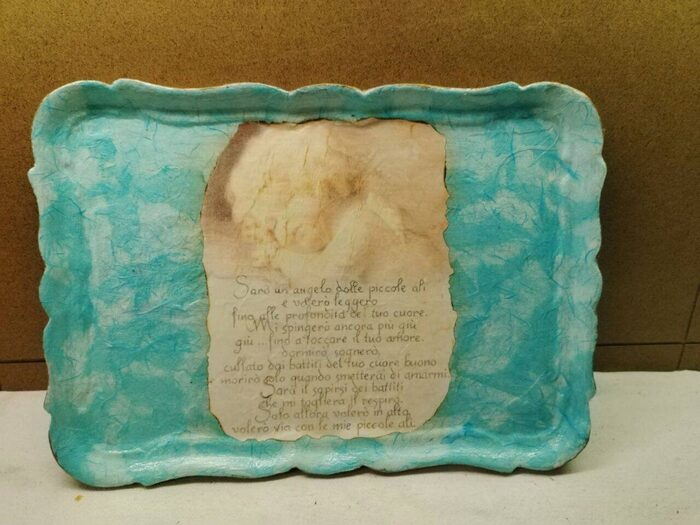 Sarò un angelo dalle piccole ali
e volerò leggero
fino alle profondità del tuo cuore.
Mi spingerò ancora più giù
giù... fino a toccare il tuo amore.
Dormirò, sognerò,
cullato dai battiti del tuo cuore buono
morirò solo quando smetterai di amarmi.
Sarà il sopirsi dei battiti
che mi toglierà il respiro.
Solo allora volerò in alto,
volerò via con le mie piccole ali.